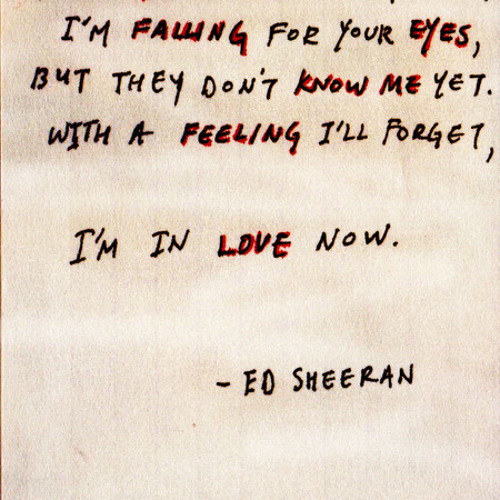 I'M FALLING FOR YOUR EYES,
BUT THEY DON'T KNOW ME YET.
WITH A FEELING I'LL FORGET,
I'M IN LOVE NOW.
- ED SHEERAN